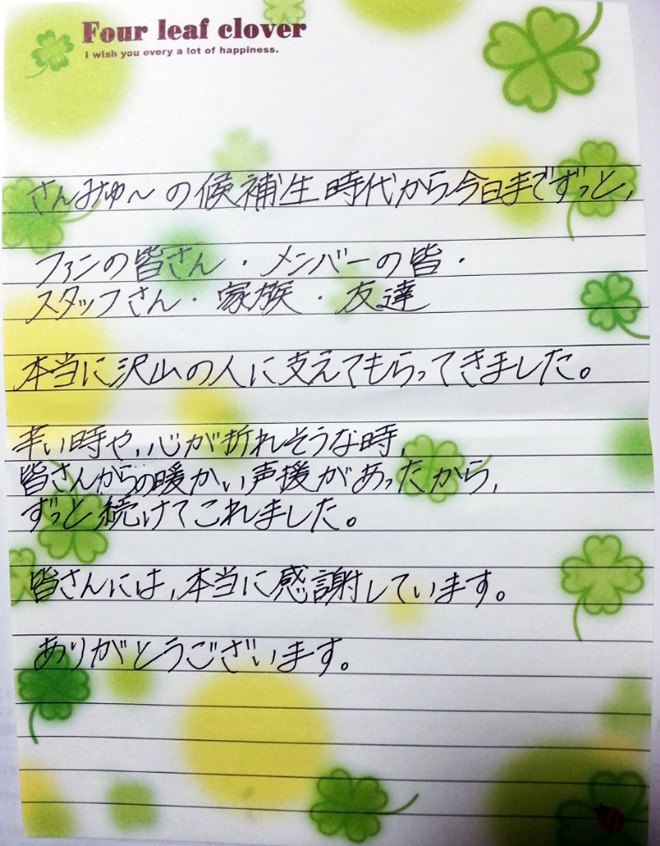 Four leaf clover
i wish you every a lot of happiness.
さんみゅ〜の候補生時代から今日までずっと,
ファンの皆さん・メンバーの皆・
スタッフさん・家族・友達
本当に沢山の人に支えてもらってきました。
辛い時や,心が折れそうな時,
皆さんからの暖かい声援があったから,
ずっと続けてこれました。
皆さんには,本当に感謝しています。
ありがとうございます。